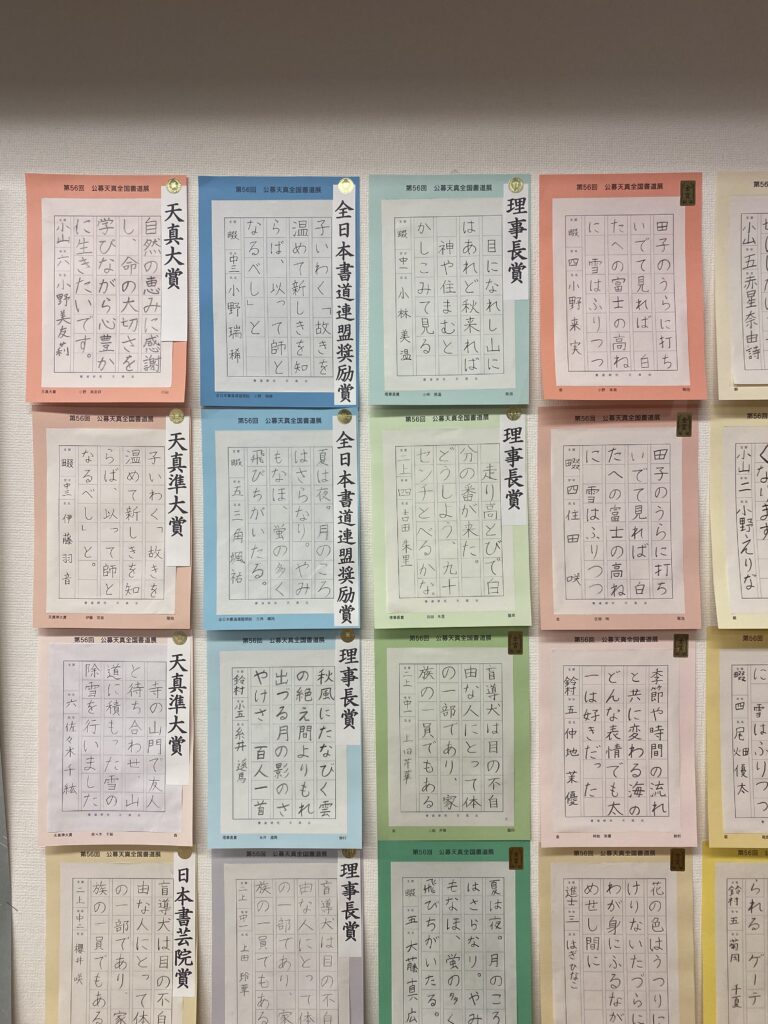 第56回 公募天真全国書道展
天真大賞
自然の恵みに感謝
し、命の大切さを
学びながら心豊か
に生きたいです。
小山 六 小野美友莉
第56回 公募天真全国書道展
全日本書道連盟奨励賞
子いわく「故きを
温めて新しきを知
らば、以って師と
なるべし」と
畷 中三 小野瑞稀
第56回 公募天真全国書道展
理事長賞
目になれし山に
はあれど秋来れば
神や住まむと
かしこみて見る
畷 中一 小林美温
第56回 公募天真全国書道展
田子のうらに打ち
いでて見れば 白
たへの富士の高ね
に 雪はふりつつ
畷 四 小野来実
小山 五 赤星奈由詩
第56回 公募天真全国書道展
天真準大賞
子いわく「故きを
温めて新しきを知
らば、以って師と
なるべし」と。
畷 中三 伊藤羽音
第56回 公募天真全国書道展
全日本書道連盟奨励賞
夏は夜。月のころ
はさらなり。やみ
もなほ、蛍の多く
飛びちがいたる。
畷 五 三角颯祐
第56回 公募天真全国書道展
理事長賞
走り高とびで自
分の番が来た。
どうしよう、九十
センチとべるかな
二上 四 吉田朱里
第56回 公募天真全国書道展
田子のうらに打ち
いでて見れば 白
たへの富士の高ね
に 雪はふりつつ
畷 四 住田咲
くないます
小山 二 小野えりな
第56回 公募天真全国書道展
天真準大賞
寺の山門で友人
と待ち合わせ、山
道に積もった雪の
除雪を行いました
六 佐々木千紘
第56回 公募天真全国書道展
理事長賞
秋風にたなびく雲
の絶え間よりもれ
出つる月の影のさ
やけさ 百人一首
鈴村 小五 糸井遥馬
第56回 公募天真全国書道展
盲導犬は目の不自
由な人にとって体
の一部であり、家
族の一員でもある
二上 中一 上田芹華
第56回 公募天真全国書道展
季節や時間の流れ
と共に変わる海の
どんな表情でも太
一は好きだった
鈴村 五 仲地菜優
に 雪はふりつつ
畷 四 尾畑優太
第56回 公募天真全国書道展
日本書芸院賞
盲導犬は目の不自
由な人にとって体
の一部であり、家
族の一員でもある
二上 中二 櫻井咲
第56回 公募天真全国書道展
理事長賞
盲導犬は目の不自
由な人にとって体
の一部であり、家
族の一員でもある
二上 中一 上田玲華
第56回 公募天真全国書道展
夏は夜。月のころ
はさらなり。やみ
もなほ、蛍の多く
飛びちがいたる。
畷 五 大藤真広
第56回 公募天真全国書道展
花の色はうつりに
けりないたづらに
わが身にふるなが
めせし間に
進士 三 はぎひなこ
られる ゲーテ
鈴村 五 菊岡千夏